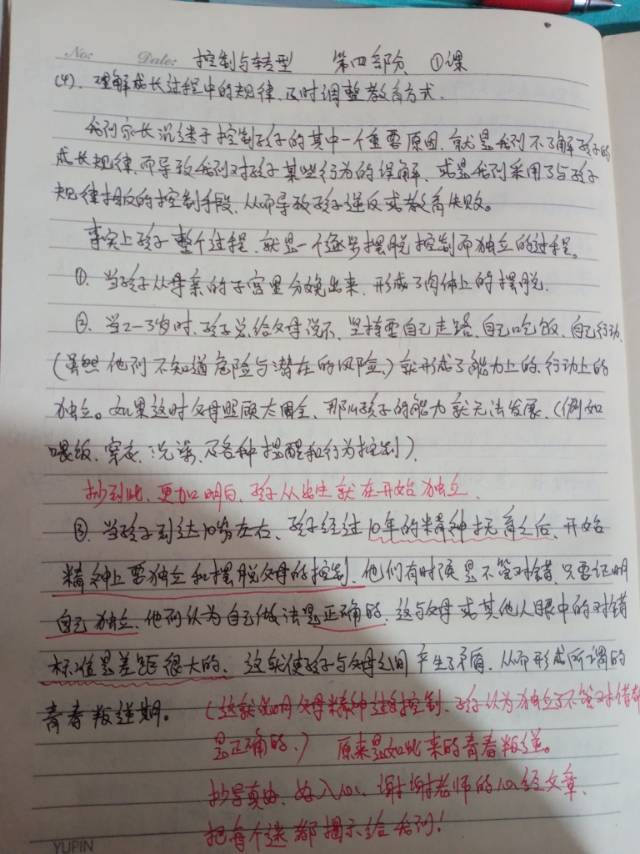 No: Date: 控制与转型 第四部分 ①课
(4). 理解成长过程中的规律,及时调整教育方式.
我们家长沉迷于控制孩子的其中一个重要原因,就是我们不了解孩子的
成长规律,而导致我们对孩子某些行为的误解,或是我们采用了与孩子
规律相反的控制手段,从而导致孩子逆反或教育失败。
事实上孩子整个过程,就是一个逐步摆脱控制而独立的过程。
①. 当孩子从母亲的子宫里分娩出来,形成了肉体上的摆脱.
②. 当2-3岁时,孩子总给父母说不,坚持要自己走路,自己吃饭,自己行动.
(虽然他们不知道危险与潜在的风险,)就形成了能力上的,行动上的
独立。如果这时父母照顾太周全,那么孩子的能力就无法发展,(例如
喂饭,穿衣,洗澡,及各种提醒和行为控制).
抄到此,更加明白,孩子从出生就在开始独立.
③. 当孩子到达10岁左右,孩子经过10年的精神抚育之后,开始
精神上要独立和摆脱父母的控制.他们有时候是不管对错,只要证明
自己独立.他们认为自己做法是正确的,这与父母或其他人眼中的对错
标准是差距很大的、这就使孩子与父母之间产生了矛盾,从而形成所谓的
青春叛逆期。(这就说明父母精神过于控制,孩子认为独立了不管对错都
是正确的,)原来是如此来的青春叛逆。
抄写真由、始入心、谢谢老师的心经文章,
把每个迷都揭示给我们!
YUPIN